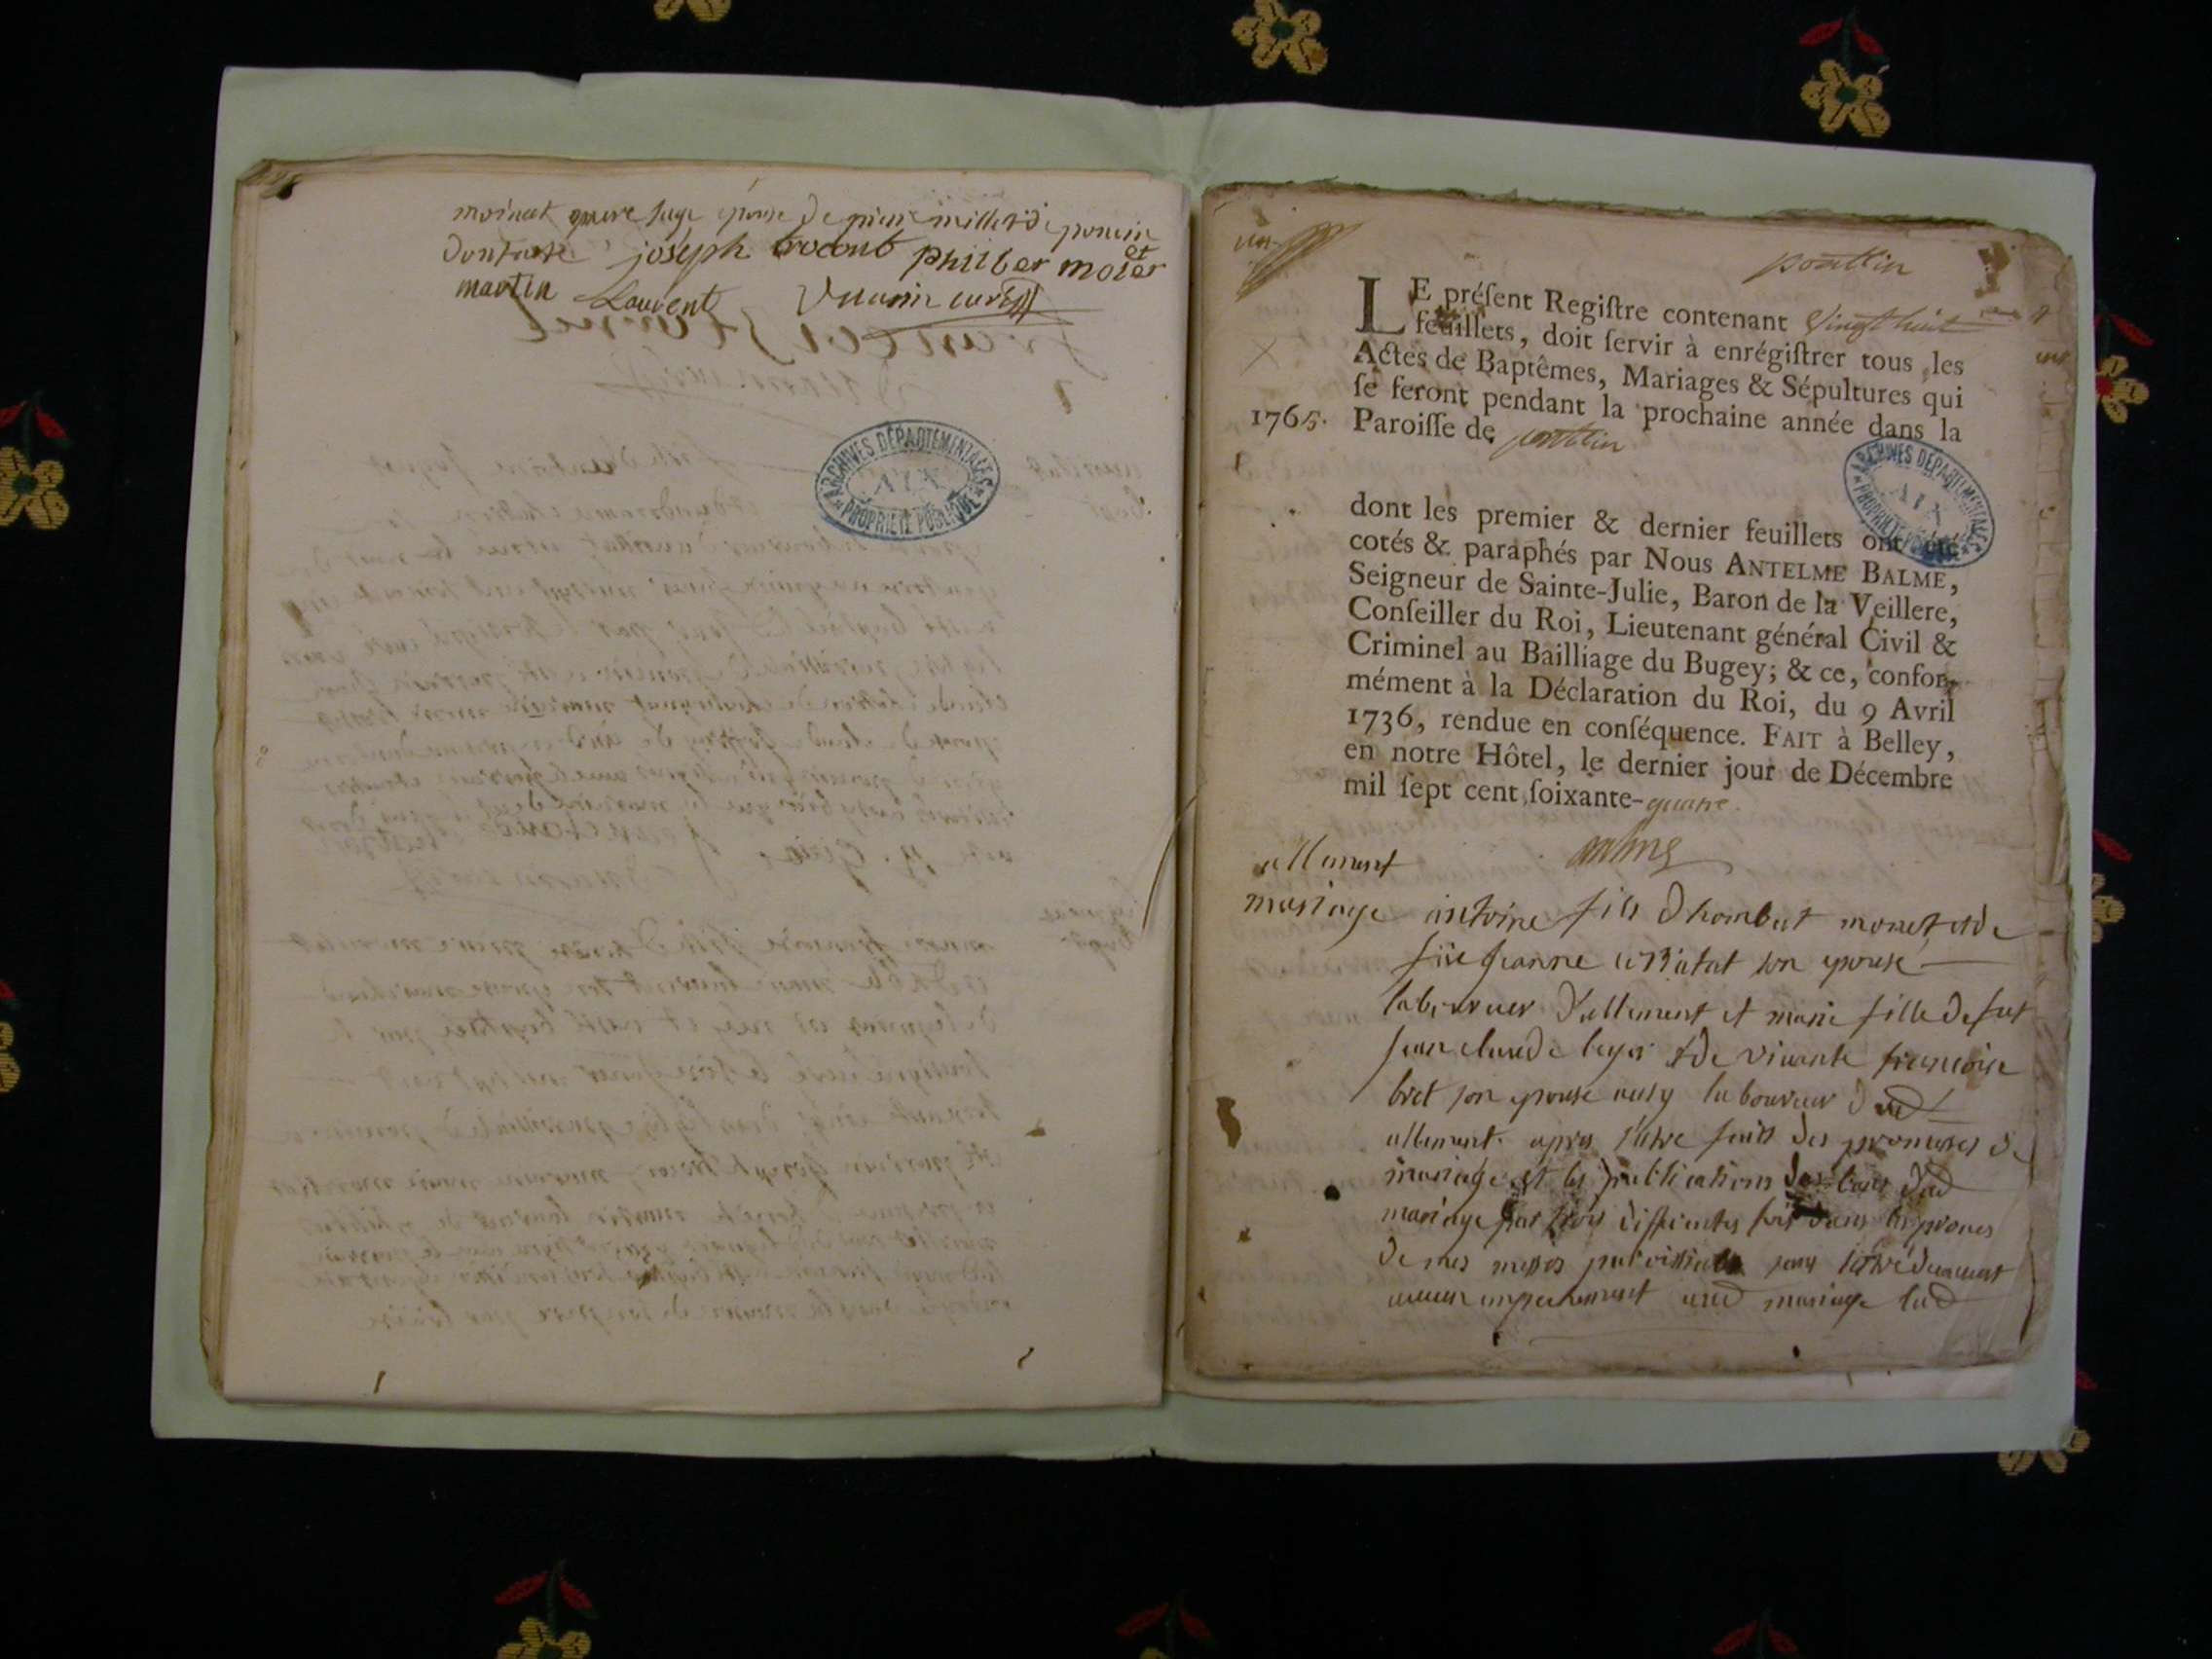 moinet
épouse de pierre millet de poncin
joseph trocont philber moier
et
martin Laurent Vuarin curé
ARCHIVES DÉPARTEMENTALES
AIX
PROPRIÉTÉ PUBLIQUE
un
ponttin
LE préſent Regiſtre contenant Vingt huit
feuillets, doit ſervir à enrégiſtrer tous les
Actes de Baptêmes, Mariages & Sépultures qui
ſe feront pendant la prochaine année dans la
1765. Paroiſſe de ponttin
ARCHIVES DÉPARTEMENTALES
AIX
PROPRIÉTÉ PUBLIQUE
dont les premier & dernier feuillets ont été
cotés & paraphés par Nous ANTELME BALME,
Seigneur de Sainte-Julie, Baron de la Veillere,
Conſeiller du Roi, Lieutenant général Civil &
Criminel au Bailliage du Bugey; & ce, confor-
mément à la Déclaration du Roi, du 9 Avril
1736, rendue en conſéquence. FAIT à Belley,
en notre Hôtel, le dernier jour de Décembre
mil ſept cent ſoixante-quatre.
allement
Balme
mariage antoine fils d'hombert monet et de
füe jeanne son epouse
laboureur d'allement et marie fille de fut
jean claude leger et de vivante francoise
bret son epouse ausy laboureur dud
allement. apres s'etre faits des promesses de
mariage et les publications des bans dud
mariage par trois differentes fois dans les prones
de mes messes parroissiales sans s'etre decouvert
aucun empechement aud mariage lad